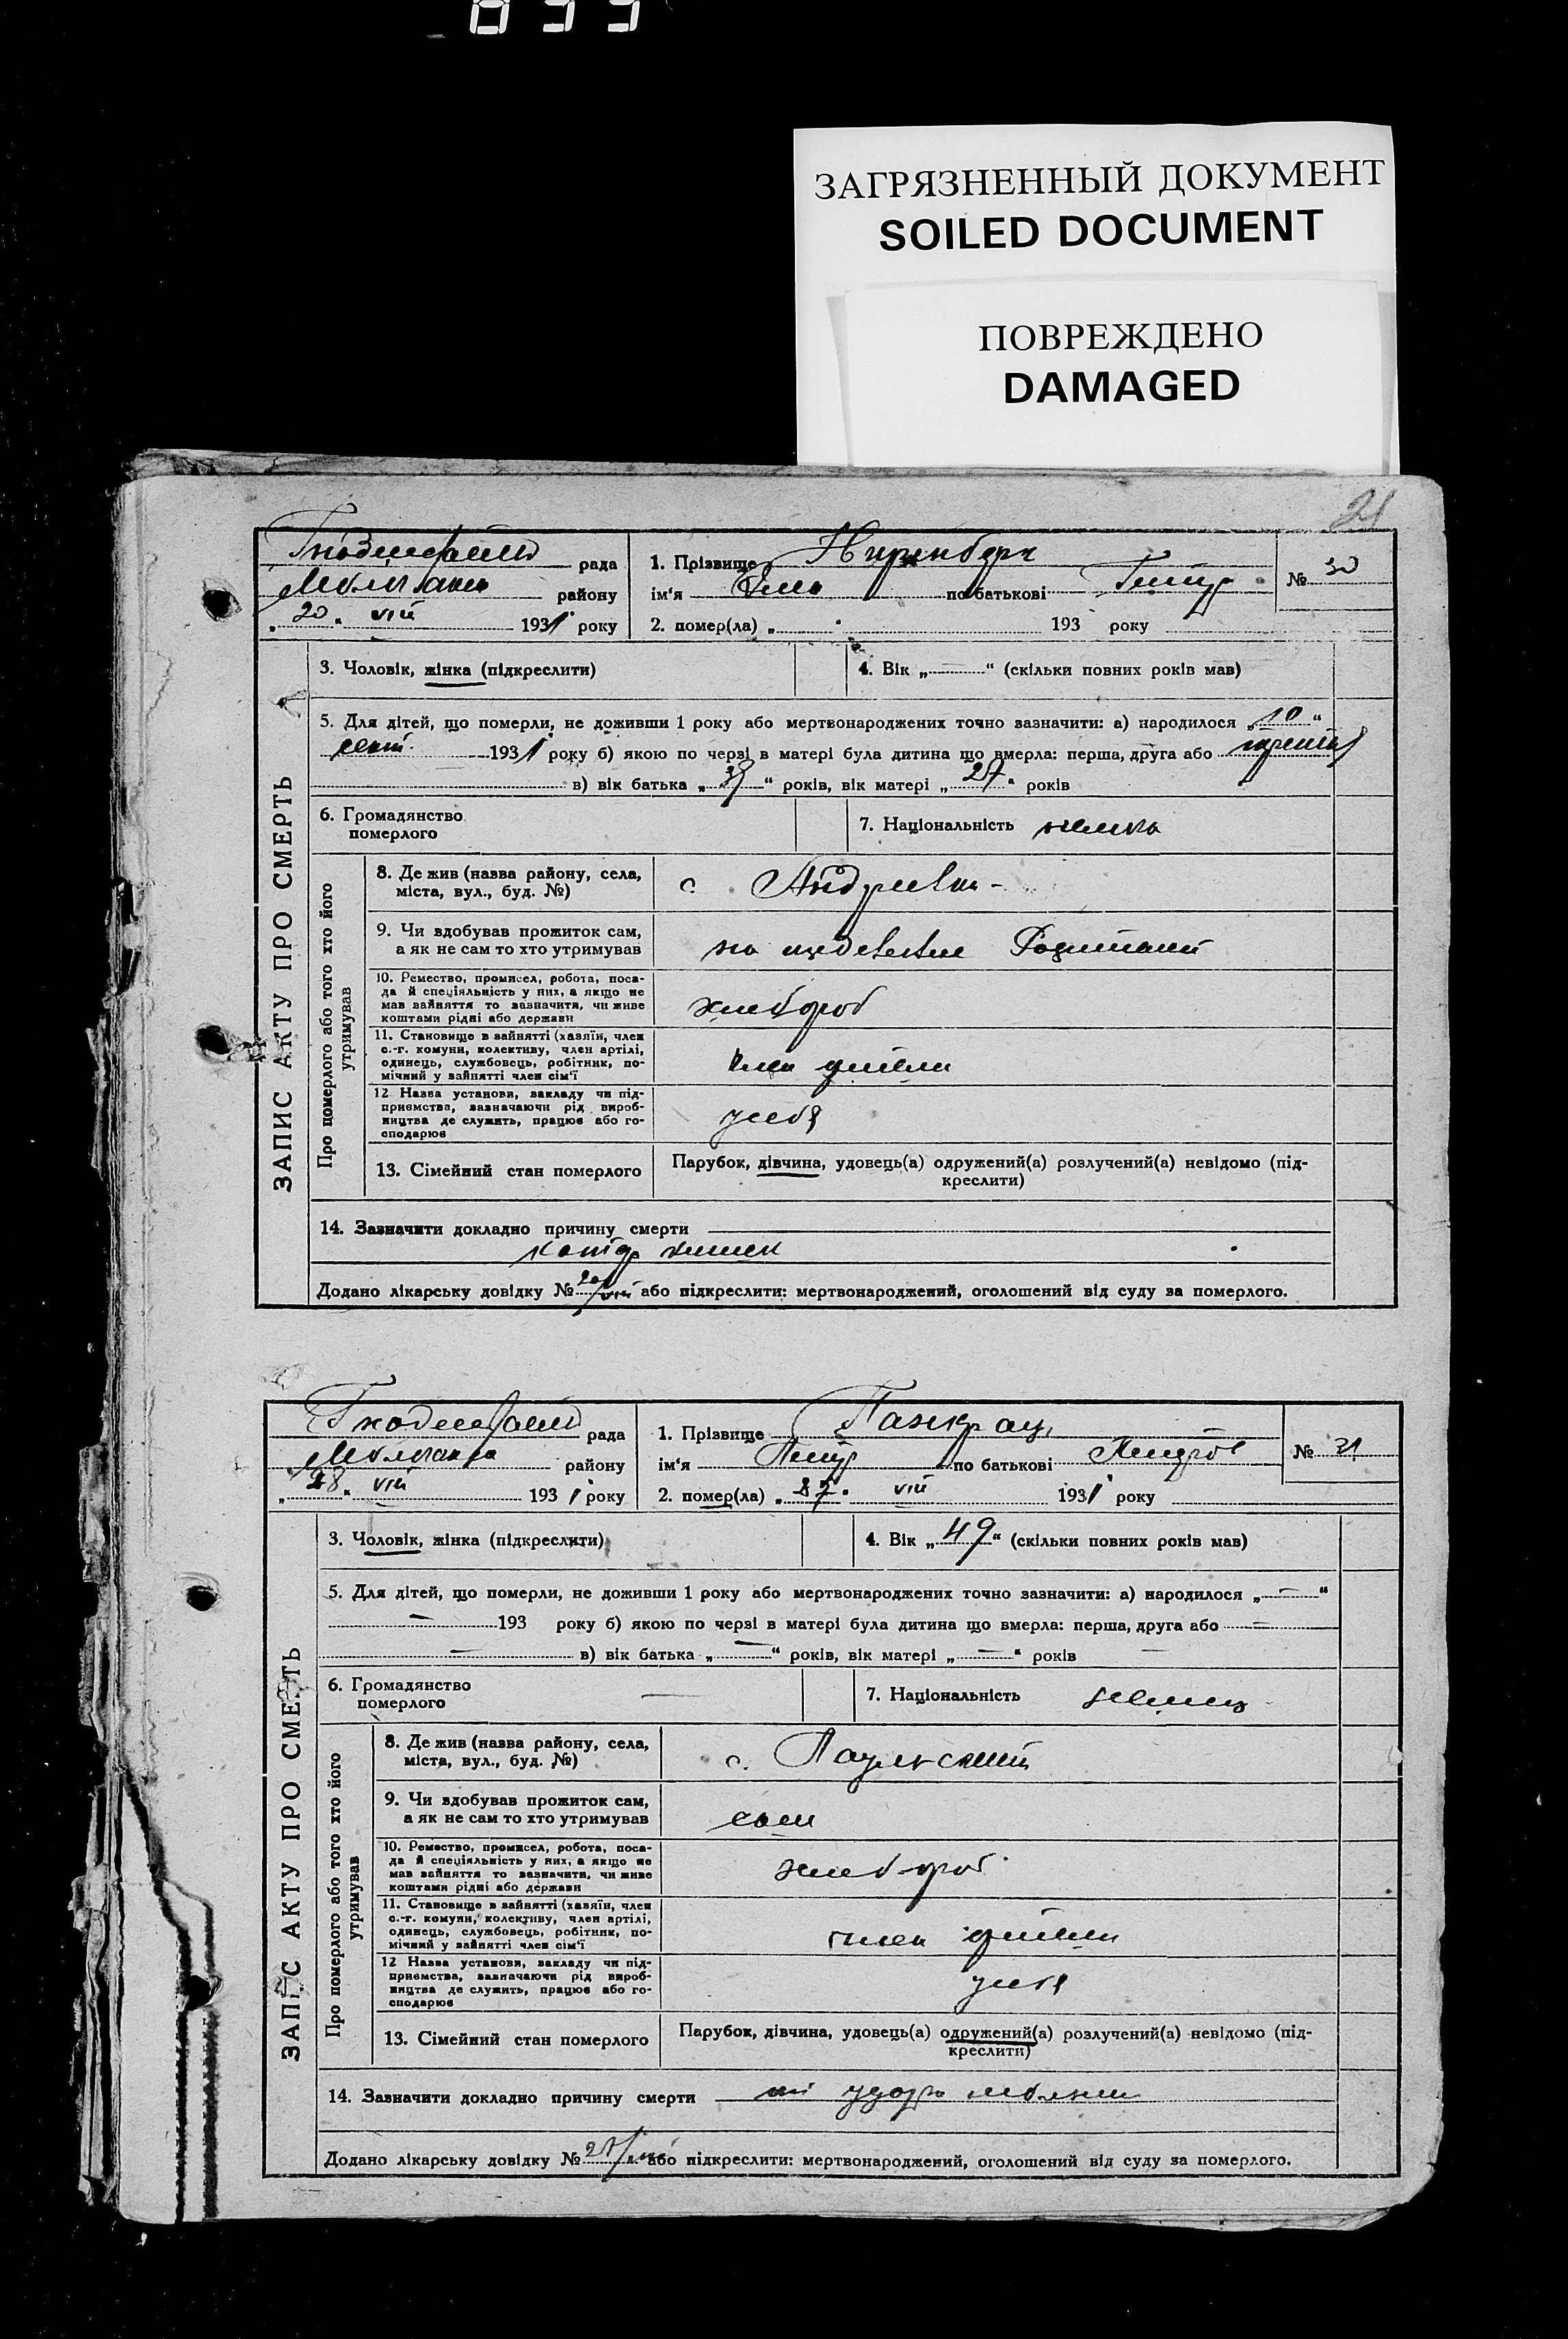 ЗАГРЯЗНЕННЫЙ ДОКУМЕНТ
SOILED DOCUMENT
ПОВРЕЖДЕНО
DAMAGED
21
рада
району
„ 20 „ VIII 1931 року
1. Прізвище Ниренберг
ім'я по батькові Петур
2. помер(ла) „ 193 року
№ 30
ЗАПИС АКТУ ПРО СМЕРТЬ
3. Чоловік, жінка (підкреслити)
4. Вік „ — “ (скільки повних років мав)
5. Для дітей, що померли, не доживши 1 року або мертвонароджених точно зазначити: а) народилося „ 10 “
1931 року б) якою по черзі в матері була дитина що вмерла: перша, друга або третья
в) вік батька „ “ років, вік матері „ 27 “ років
6. Громадянство
померлого
7. Національність немка
Про померлого або того хто його
утримував
8. Де жив (назва району, села,
міста, вул., буд. №)
с.
9. Чи вдобував прожиток сам,
а як не сам то хто утримував
на иждевение Родителей
10. Ремество, промисел, робота, поса-
да й спеціяльність у них, а якщо не
мав зайняття то зазначити, чи живе
коштами рідні або держави
хлебороб
11. Становище в зайнятті (хазяїн, член
с.-г. комуни, колективу, член артілі,
одинець, службовець, робітник, по-
мічний у зайнятті член сім'ї
член артели
12 Назва установи, закладу чи під-
приємства, зазначаючи рід вироб-
ництва де служить, працює або го-
сподарює
у себя
13. Сімейний стан померлого
Парубок, дівчина, удовець(а) одружений(а) розлучений(а) невідомо (під-
креслити)
14. Зазначити докладно причину смерти
катар кишек
Додано лікарську довідку № 20/VIII або підкреслити: мертвонароджений, оголошений від суду за померлого.
рада
району
„ 28 „ VIII 1931 року
1. Прізвище Панкрац
ім'я Петур по батькові Петров
2. помер(ла) „ 27 “ VIII 1931 року
№ 31
ЗАПИС АКТУ ПРО СМЕРТЬ
3. Чоловік, жінка (підкреслити)
4. Вік „ 49 “ (скільки повних років мав)
5. Для дітей, що померли, не доживши 1 року або мертвонароджених точно зазначити: а) народилося „ — “
— 193 року б) якою по черзі в матері була дитина що вмерла: перша, друга або —
— в) вік батька „ — “ років, вік матері „ — “ років —
6. Громадянство
померлого
—
7. Національність немец
Про померлого або того хто його
утримував
8. Де жив (назва району, села,
міста, вул., буд. №)
с.
9. Чи вдобував прожиток сам,
а як не сам то хто утримував
сам
10. Ремество, промисел, робота, поса-
да й спеціяльність у них, а якщо не
мав зайняття то зазначити, чи живе
коштами рідні або держави
хлебороб
11. Становище в зайнятті (хазяїн, член
с.-г. комуни, колективу, член артілі,
одинець, службовець, робітник, по-
мічний у зайнятті член сім'ї
член артели
12 Назва установи, закладу чи під-
приємства, зазначаючи рід вироб-
ництва де служить, працює або го-
сподарює
у себя
13. Сімейний стан померлого
Парубок, дівчина, удовець(а) одружений(а) розлучений(а) невідомо (під-
креслити)
14. Зазначити докладно причину смерти от удара молнии
Додано лікарську довідку № або підкреслити: мертвонароджений, оголошений від суду за померлого.